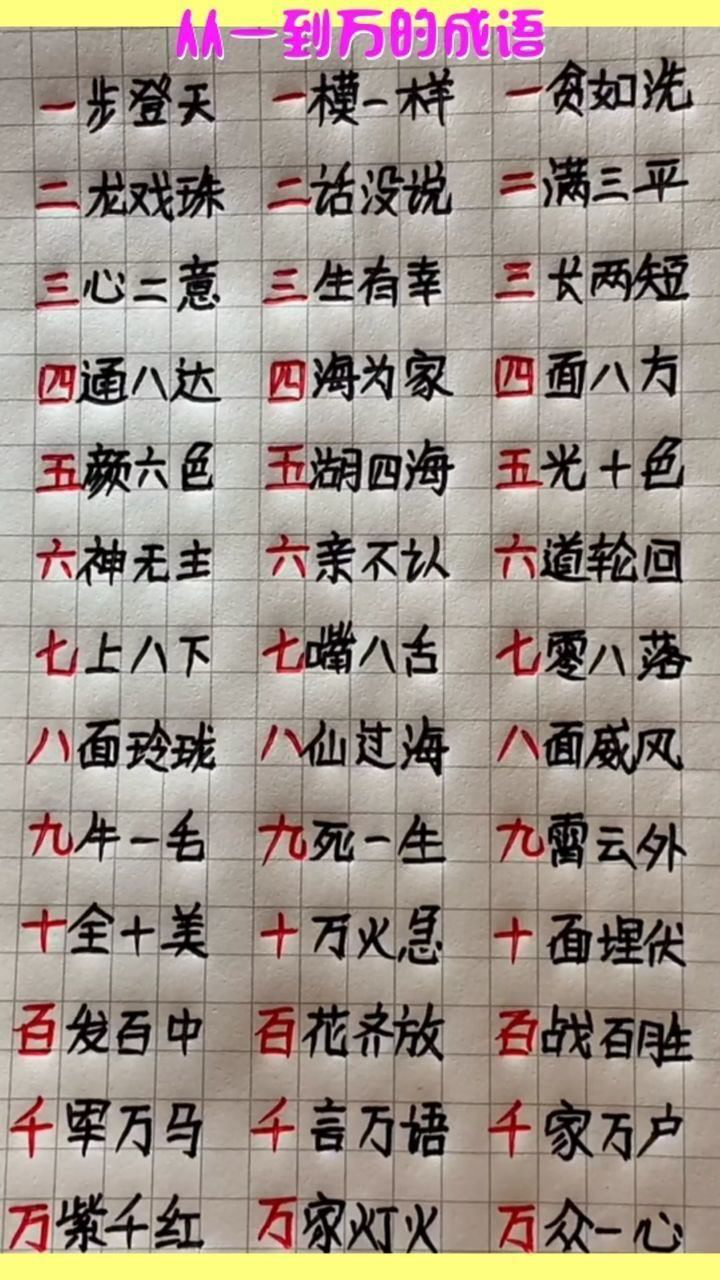 从一到万的成语
一步登天 一模一样 一贫如洗
二龙戏珠 二话没说 二满三平
三心二意 三生有幸 三长两短
四通八达 四海为家 四面八方
五颜六色 五湖四海 五光十色
六神无主 六亲不认 六道轮回
七上八下 七嘴八舌 七零八落
八面玲珑 八仙过海 八面威风
九牛一毛 九死一生 九霄云外
十全十美 十万火急 十面埋伏
百发百中 百花齐放 百战百胜
千军万马 千言万语 千家万户
万紫千红 万家灯火 万众一心